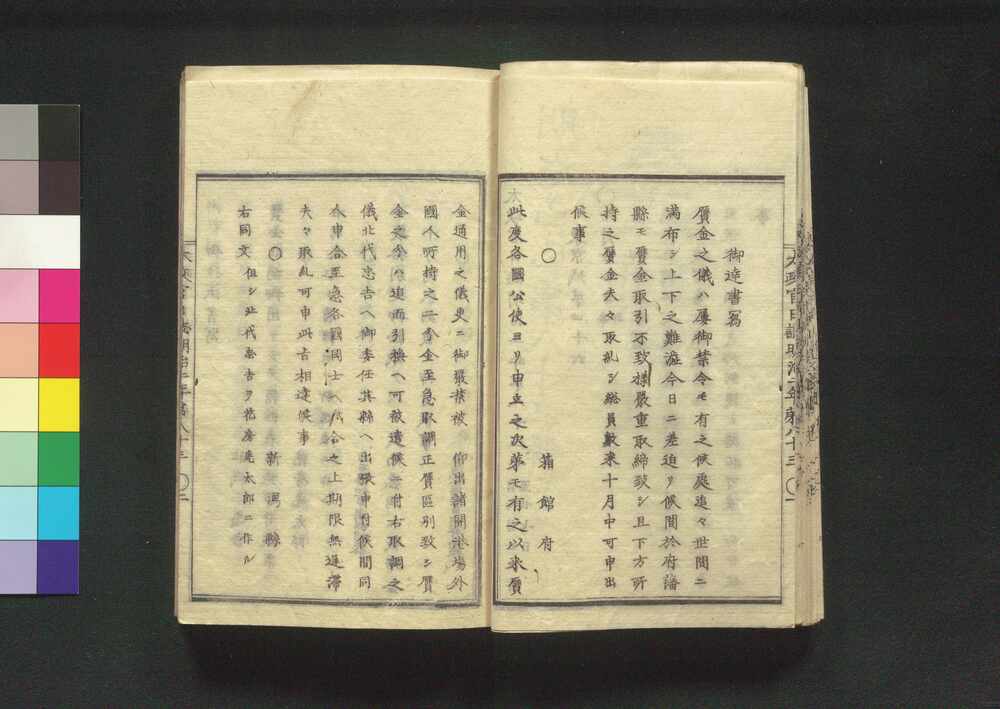 御達書写
贋金之儀ハ屢御禁令モ有之候處追々世間ニ
満布シ上下之難澁今日ニ差迫リ候間於府藩
縣モ贋金取引不致様嚴重取締致シ且下方所
持之贋金夫々取糺シ総員數來十月中可申出
候事
〇 箱館府
此度各國公使ヨリ申立之次第モ有之以來贋
金通用之儀更ニ御嚴禁被 仰出諸開港場外
國人所持之二分金至急取調正贋區別致シ贋
金之分ハ追而引換ヘ可被遣候ニ付右取調之
儀北代忠吉ヘ御委任其縣ヘ出張申付候間同
人申合至急各國岡士ヘ脈合之上期限無遅滞
夫々取糺可申此旨相達候事
〇 新潟縣
右同文 但シ北代忠吉ヲ花房虎太郎ニ作ル
太政官日誌明治二年第八十三 〇一